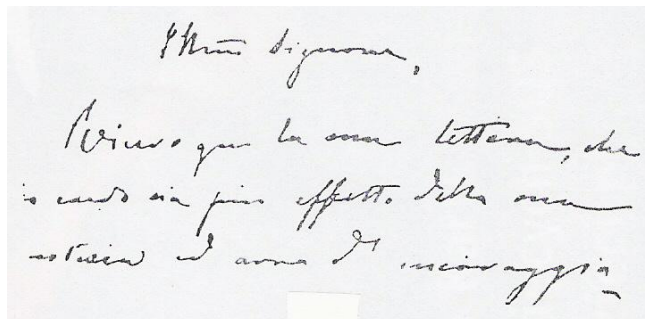 Ill.mo Signore,
Ricevo qui la sua lettera, che
credo sia più effetto della sua
ed arma d'incoraggia